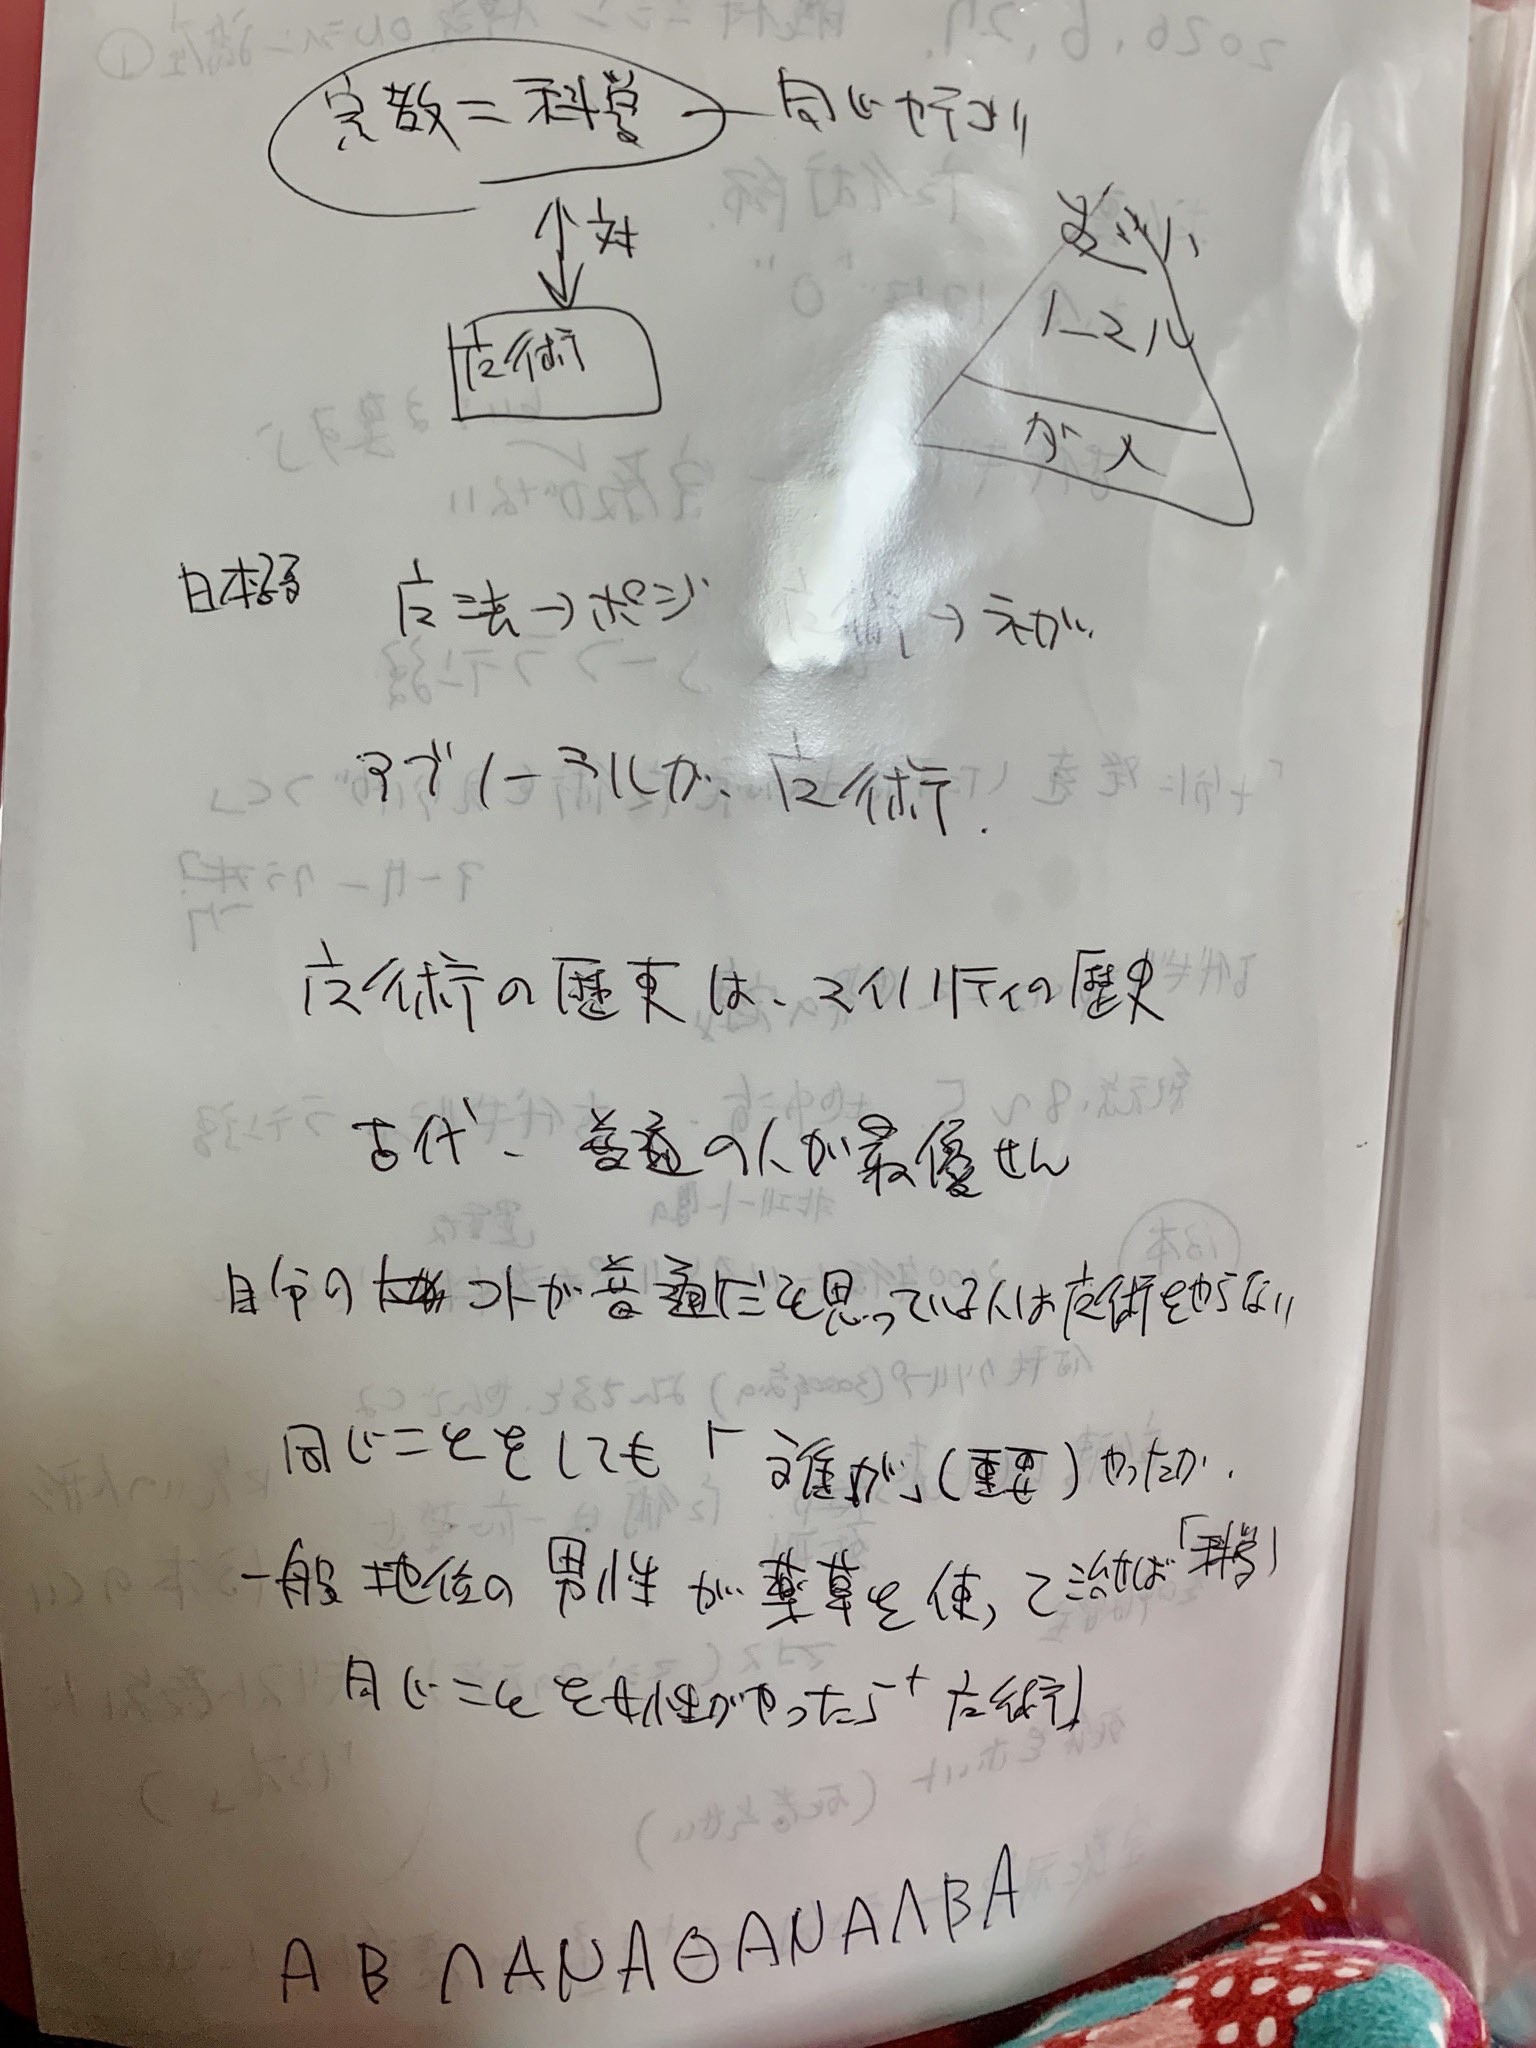 宗教=科学 同じカテゴリ
対
魔術
ノーマル
が人
日本語 魔法→ポジ 術→ネガ
アブノーマルが、魔術.
魔術の歴史は、マイノリティの歴史
古代、普通の人が最優せん
自分のコトが普通だと思っている人は魔術をやらない
同じことをしても「誰が」(重要)やったか.
一般地位の男性が薬草を使って治せば「科学」
同じことを女性がやったら「魔術」
ABΛANAΘANAΛBA